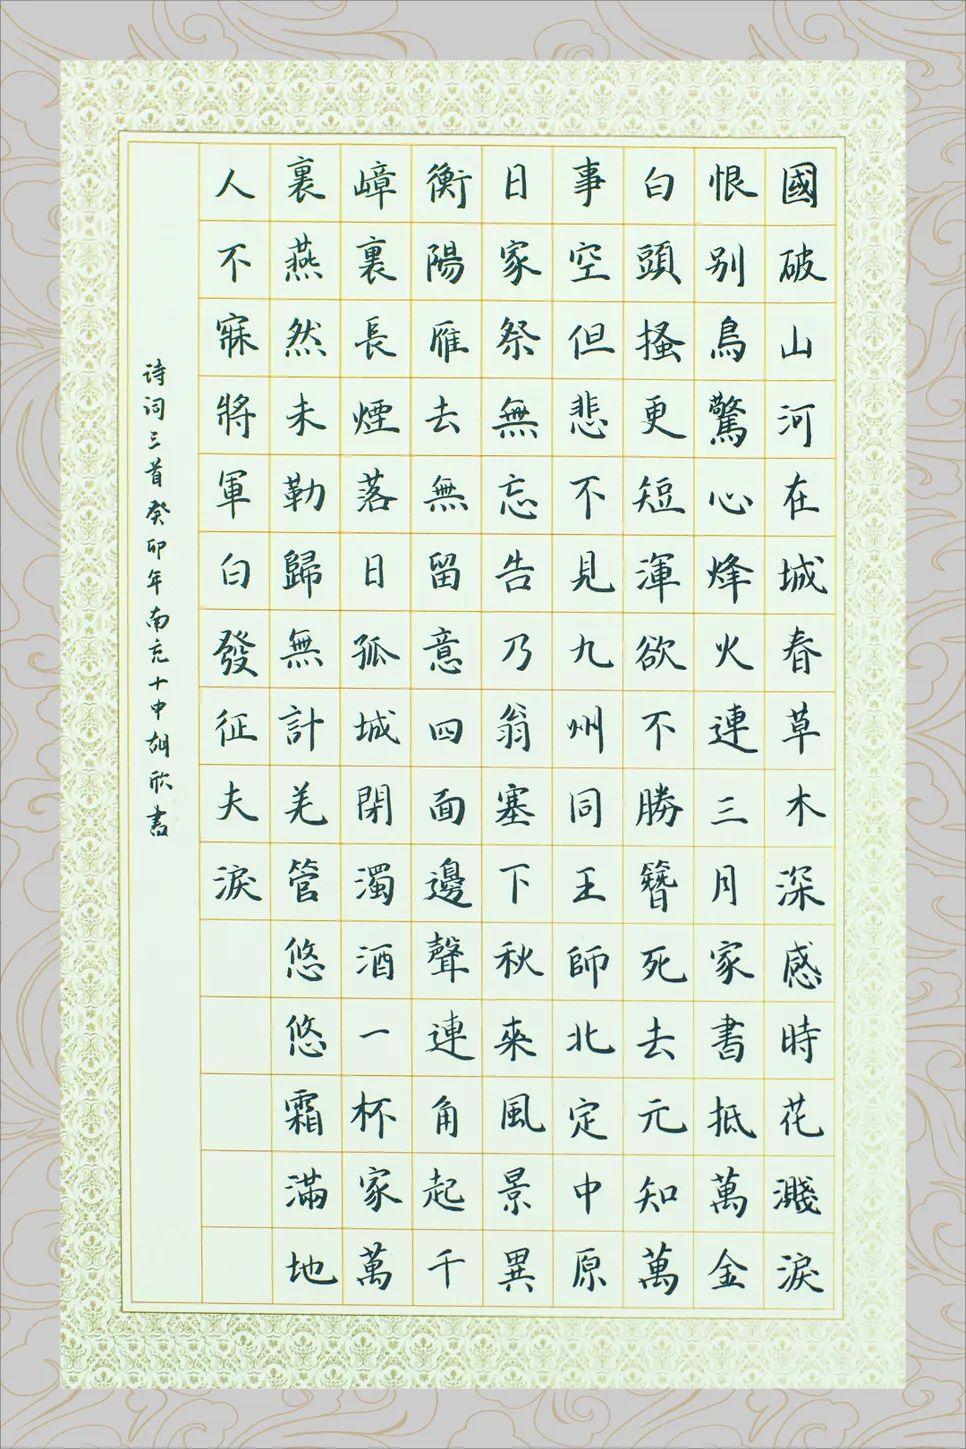 國破山河在城春草木深感時花濺淚
恨别鳥驚心烽火連三月家書抵萬金
白頭搔更短渾欲不勝簪死去元知萬
事空但悲不見九州同王師北定中原
日家祭無忘告乃翁塞下秋來風景異
衡陽雁去無留意四面邊聲連角起千
嶂裏長煙落日孤城閉濁酒一杯家萬
裏燕然未勒歸無計羌管悠悠霜滿地
人不寐將軍白發征夫淚
诗词三首癸卯年南充十中胡欣書